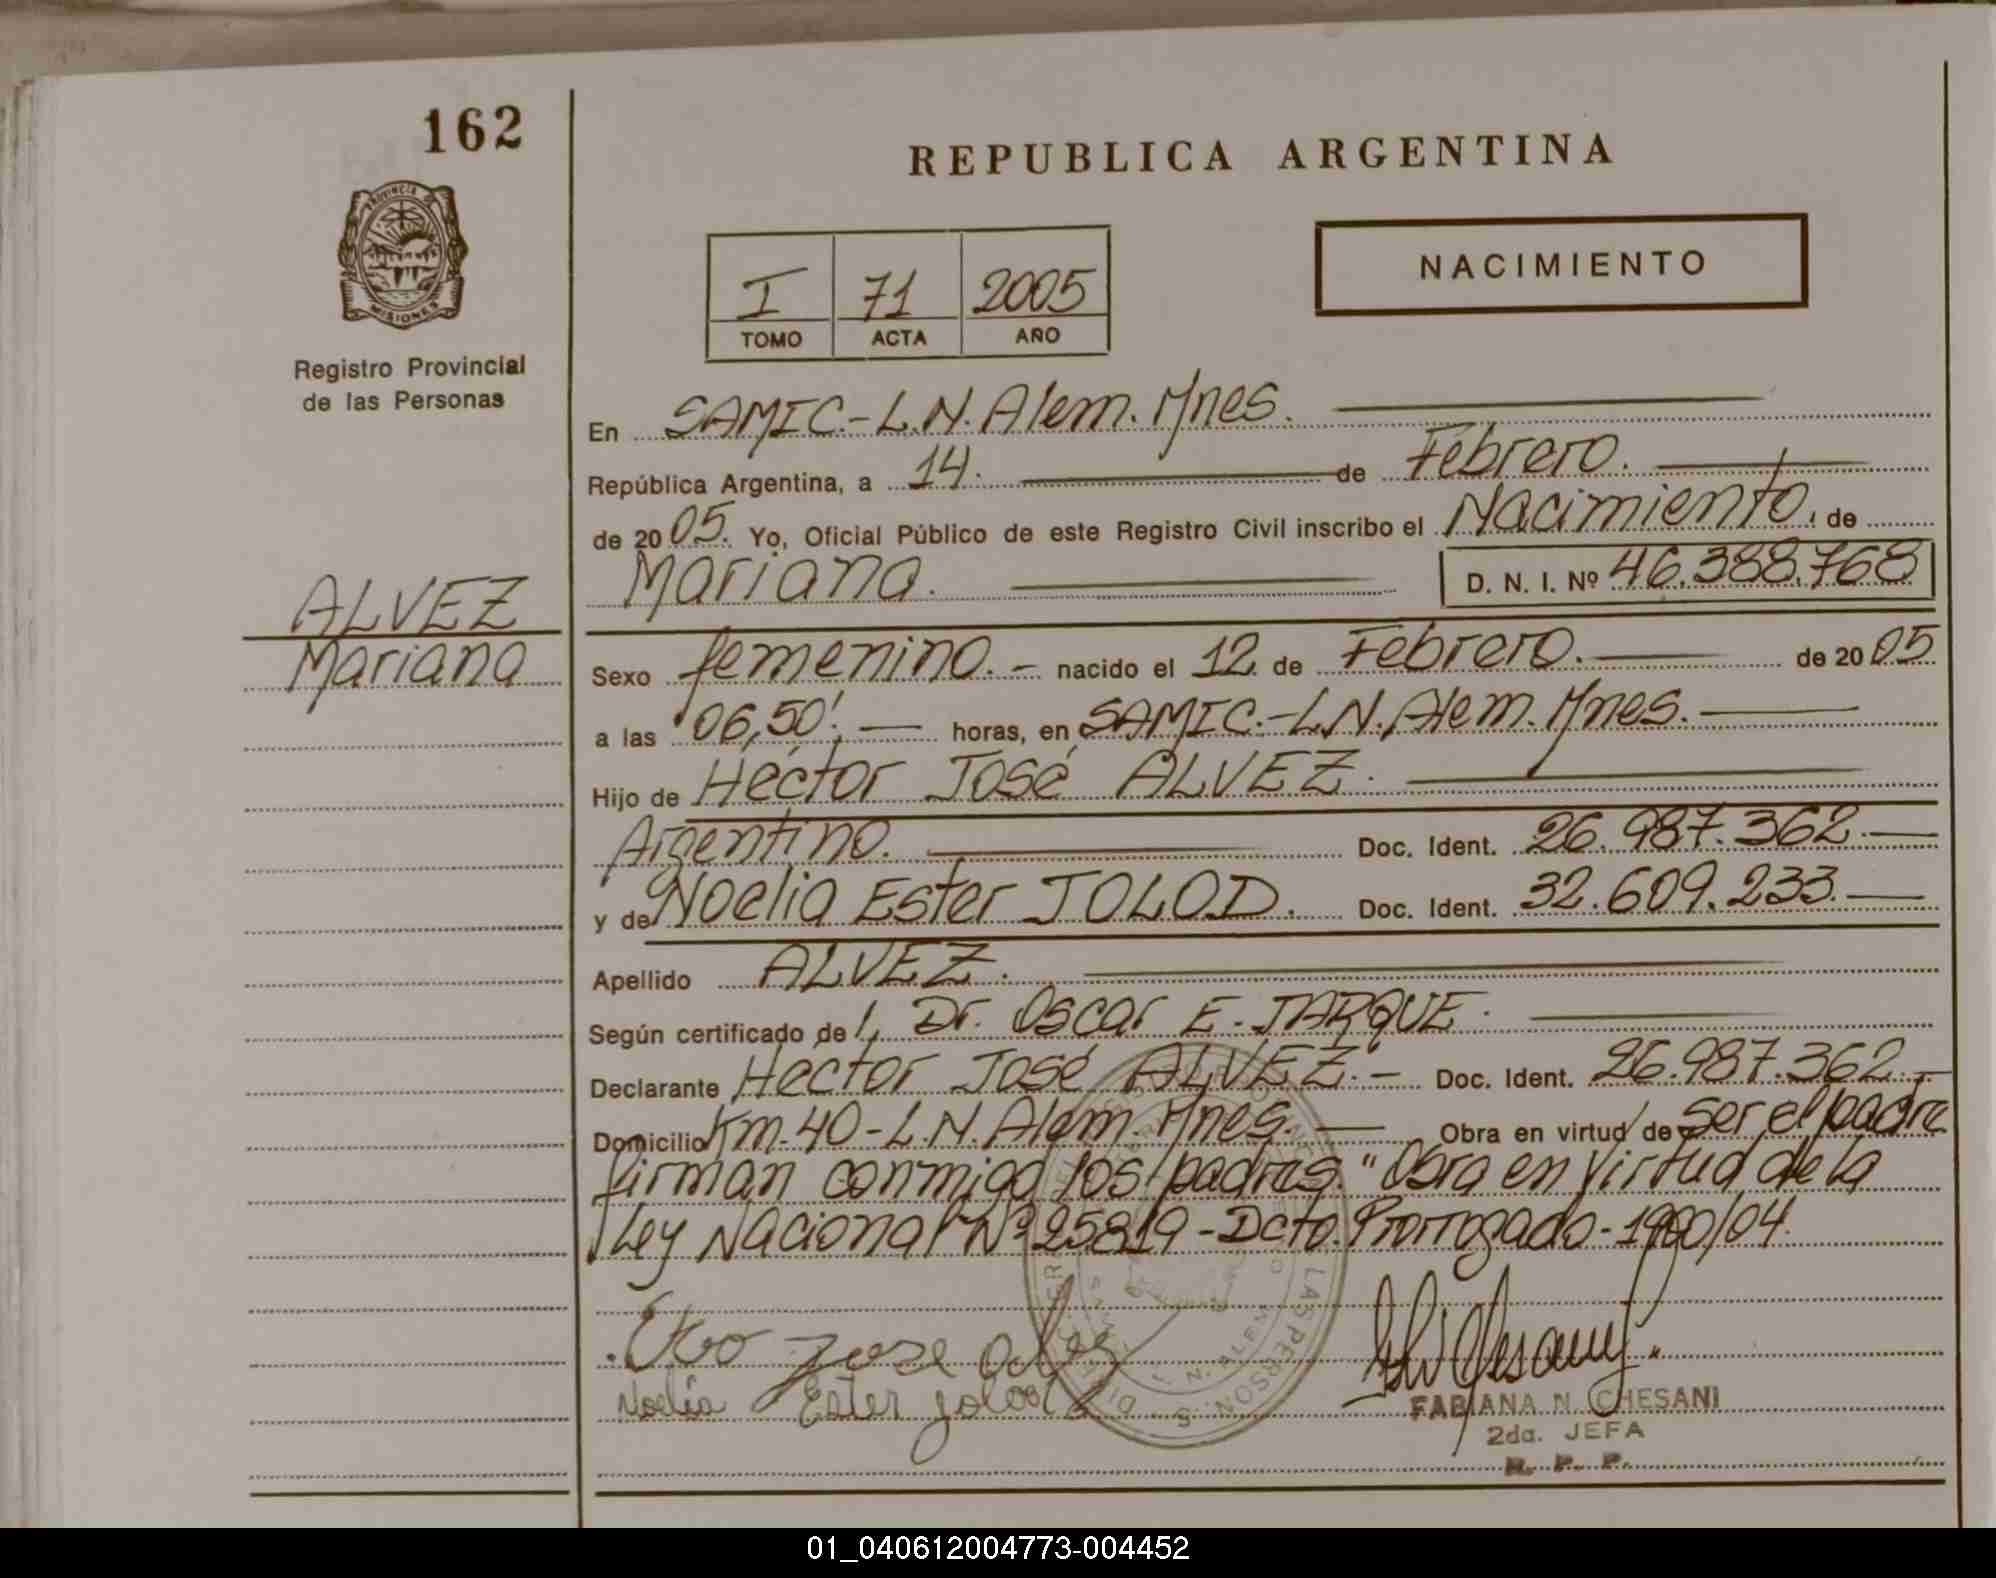 162
REPUBLICA ARGENTINA
PROVINCIA DE
MISIONES
Registro Provincial
de las Personas
I 71 2005
TOMO ACTA AÑO
NACIMIENTO
En SAMIC.-L.N.Alem.Mnes.
República Argentina, a 14. de Febrero.
de 20 05. Yo, Oficial Público de este Registro Civil inscribo el Nacimiento. de
Mariana. D. N. I. Nº 46.388.768
ALVEZ
Mariana
Sexo femenino.- nacido el 12 de Febrero. de 20 05
a las 06,50'. horas, en SAMIC.-L.N.Alem.Mnes.
Hijo de Héctor José ALVEZ.
Argentino. Doc. Ident. 26.987.362.
y de Noelia Ester JOLOD. Doc. Ident. 32.609.233.
Apellido ALVEZ.
Según certificado de Dr. Oscar E. JARQUE.
Declarante Héctor José ALVEZ.- Doc. Ident. 26.987.362.
Domicilio Km.40-L.N.Alem.Mnes. Obra en virtud de ser el padre
firman conmigo los padres. "Obra en virtud de la
Ley Nacional Nº 25819-Dcto. Prorrogado-1900/04.
Jose
Noelia Ester Jolod
FABIANA N. CHESANI
2da. JEFA
R. P. P.
LAS PERSONAS
L. N. ALEM
01_040612004773-004452